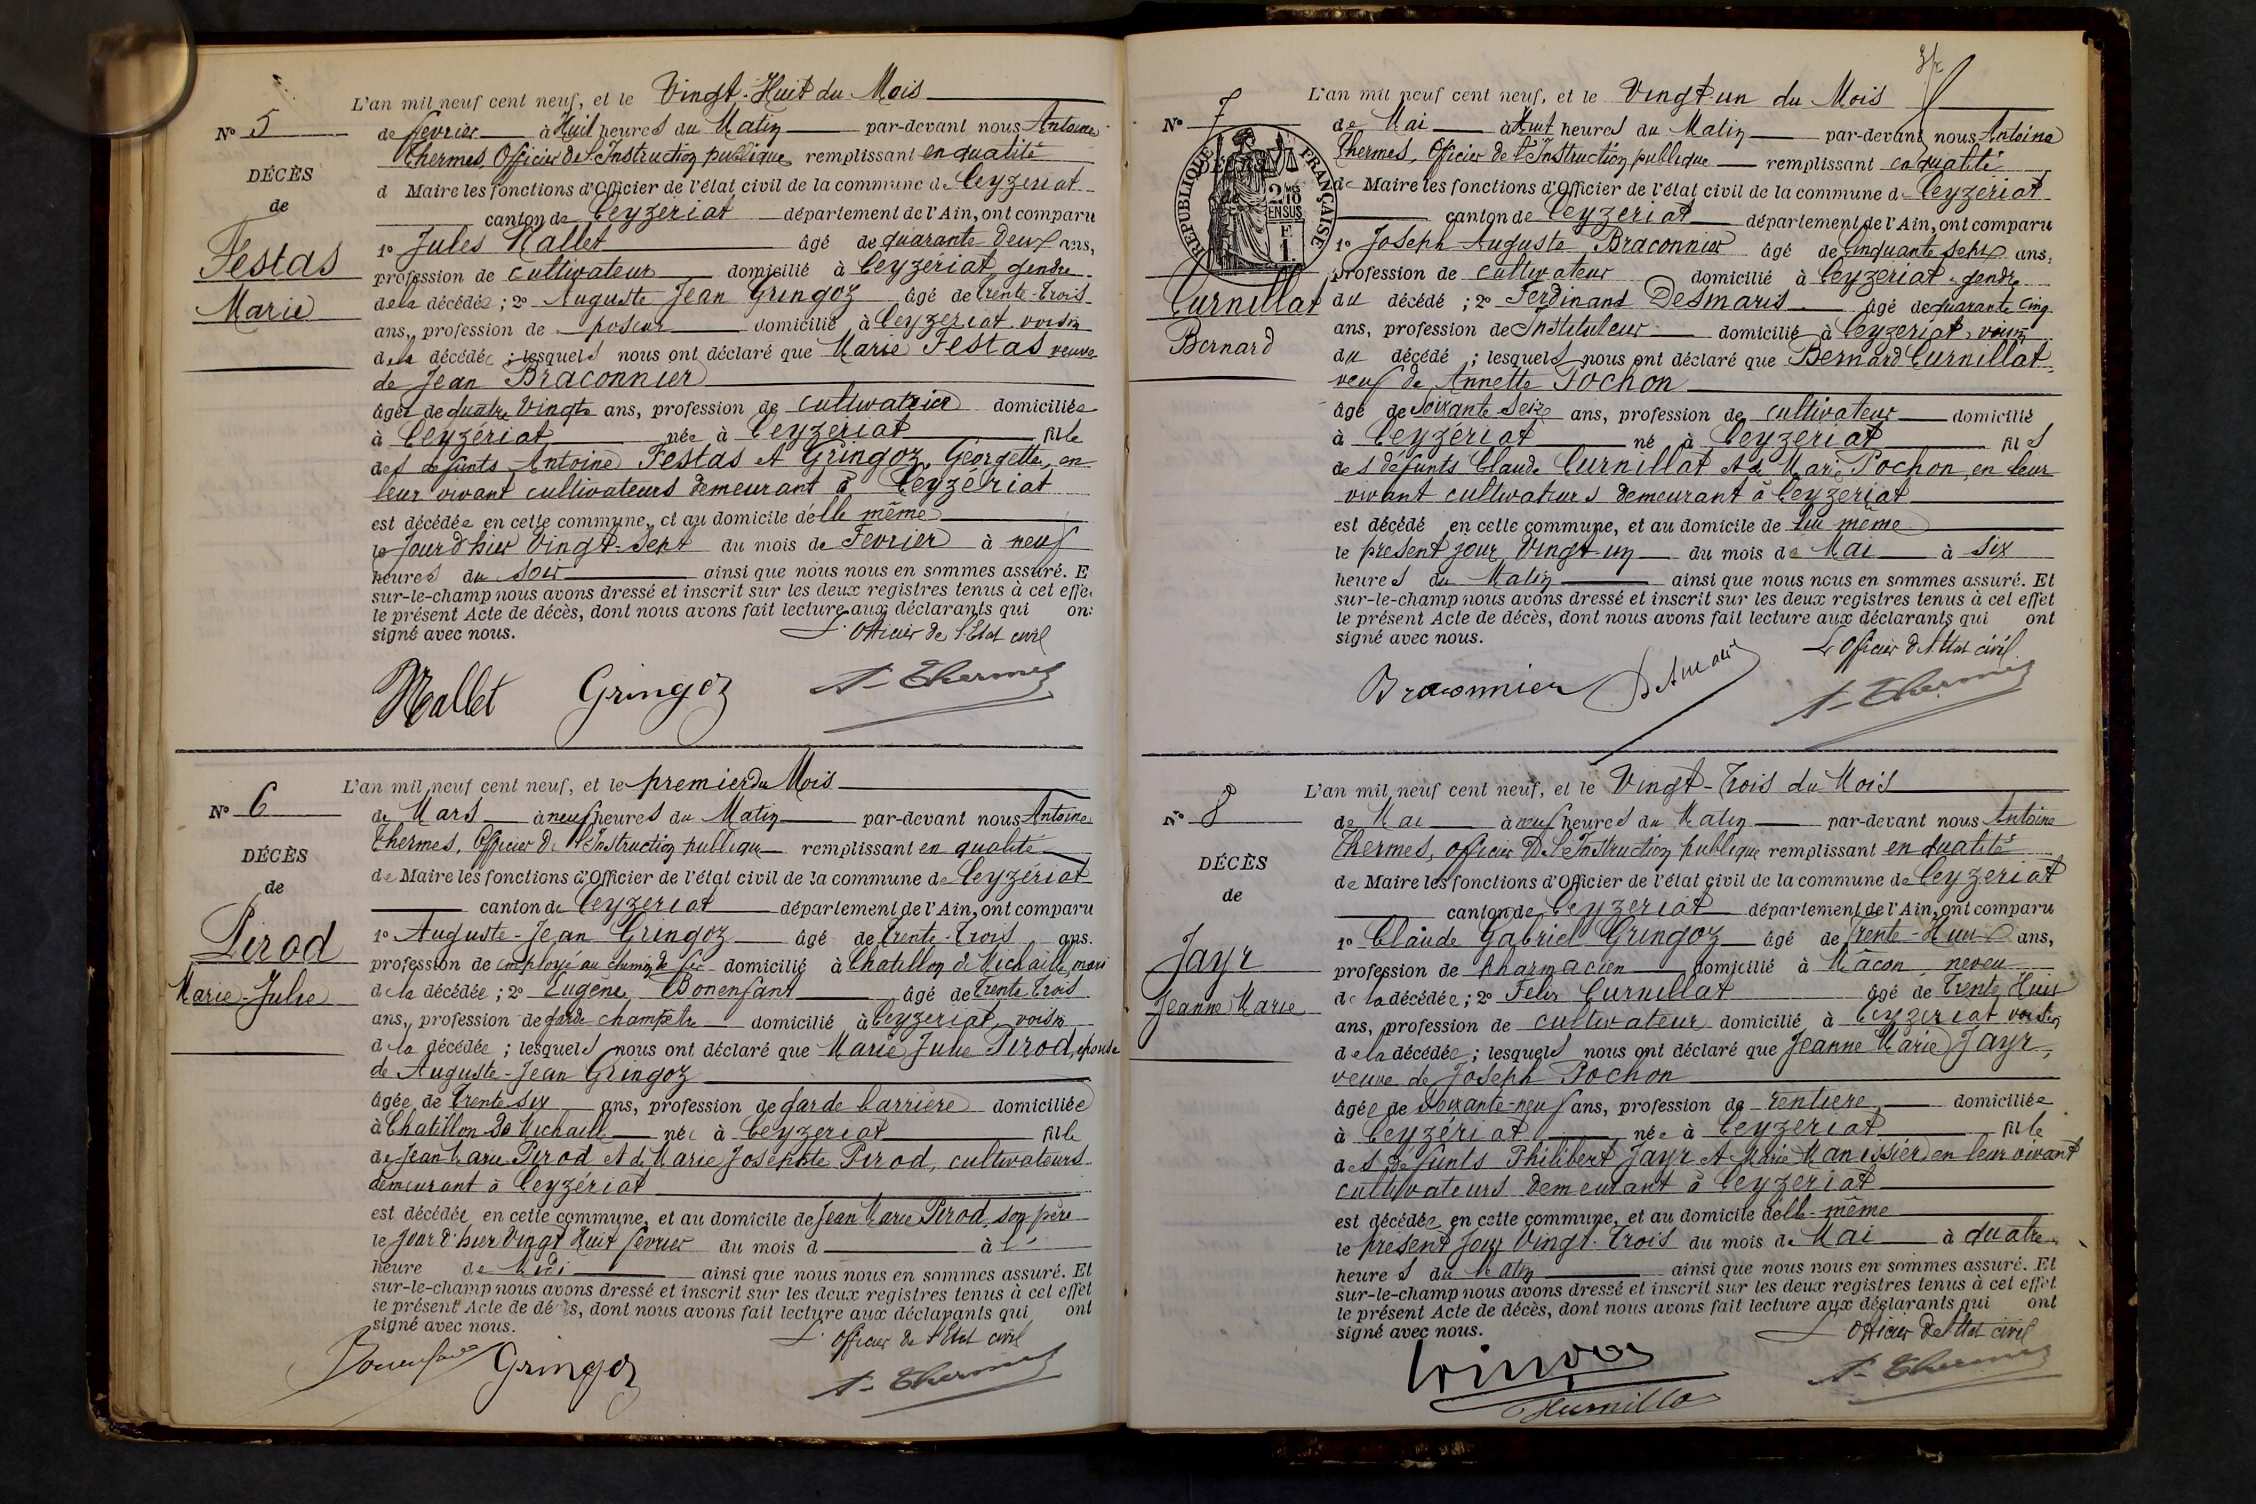 L'an mil neuf cent neuf, et le Vingt-Huit du Mois
N° 5
de fevrier à Huit heures du Matin par-devant nous Antoine
Thermes, Officier de l'Instruction publique remplissant en qualité
DÉCÈS
d Maire les fonctions d'Officier de l'état civil de la commune de Ceyzeriat
de
canton de Ceyzériat département de l'Ain, ont comparu
1° Jules Mallet âgé de quarante deux ans,
Festas
profession de cultivateur domicilié à Ceyzériat, gendre
Marie
de la décédée ; 2° Auguste Jean Gringoz âgé de trente-trois
ans, profession de poseur domicilié à Ceyzériat voisin
de la décédée ; lesquels nous ont déclaré que Marie Festas veuve
de Jean Braconnier
âgée de quatre vingts ans, profession de cultivatrice domiciliée
à Ceyzériat née à Ceyzeriat fille
des defunts Antoine Festas et Gringoz, Georgette, en
leur vivant cultivateurs demeurant à Ceyzériat
est décédée en cette commune, et au domicile d'elle même
le jour d'hier Vingt-Sept du mois de Fevrier à neuf
heures du soir ainsi que nous nous en sommes assuré. E
sur-le-champ nous avons dressé et inscrit sur les deux registres tenus à cet effe
le présent Acte de décès, dont nous avons fait lecture aux déclarants qui on
signé avec nous.
L'Officier de l'Etat civil
Mallet Gringoz A- Thermes
L'an mil neuf cent neuf, et le premier du Mois
N° 6
de Mars à neuf heures du Matin par-devant nous Antoine
Thermes, Officier de l'Instruction publique remplissant en qualité
DÉCÈS
de Maire les fonctions d'Officier de l'état civil de la commune de Ceyzériat
de
canton de Ceyzeriat département de l'Ain, ont comparu
Pirod
1° Auguste-Jean Gringoz âgé de trente-trois ans.
profession de employé au chemin de fer domicilié à Chatillon de Michaille, mari
Marie-Julie
de la décédée ; 2° Eugène Bonenfant âgé de trente trois
ans, profession de garde champêtre domicilié à Ceyzeriat, voisin
de la décédée ; lesquels nous ont déclaré que Marie Julie Pirod, épouse
de Auguste-Jean Gringoz
âgée de trente six ans, profession de garde barrière domiciliée
à Chatillon de Michaille née à Ceyzeriat fille
de Jean Marie Pirod et de Marie Josephte Pirod, cultivateurs
demeurant à Ceyzériat
est décédée en cette commune, et au domicile de Jean Marie Pirod, son père
le jour d'hier Vingt Huit fevrier du mois d à l'
heure de Midi ainsi que nous nous en sommes assuré. Et
sur-le-champ nous avons dressé et inscrit sur les deux registres tenus à cet effet
le présent Acte de décès, dont nous avons fait lecture aux déclarants qui ont
signé avec nous.
L'Officier de l'Etat civil
Bonenfant Gringoz A- Thermes
L'an mil neuf cent neuf, et le Vingt-un du Mois
N° 7
de Mai à Huit heures du Matin par-devant nous Antoine
Thermes, Officier de l'Instruction publique remplissant en qualité
RÉPUBLIQUE FRANÇAISE
2/10 EN SUS
F 1
de Maire les fonctions d'Officier de l'état civil de la commune de Ceyzeriat
canton de Ceyzeriat département de l'Ain, ont comparu
1° Joseph-Auguste Braconnier âgé de cinquante sept ans,
profession de cultivateur domicilié à Ceyzeriat, gendre
Curnillat
du décédé ; 2° Ferdinand Desmaris âgé de quarante cinq
Bernard
ans, profession de Instituteur domicilié à Ceyzeriat, voisin
du décédé ; lesquels nous ont déclaré que Bernard Curnillat
veuf de Annette Pochon
âgé de soixante Seize ans, profession de cultivateur domicilié
à Ceyzériat né à Ceyzeriat fils
des défunts Claude Curnillat et de Marie Pochon, en leur
vivant cultivateurs demeurant à Ceyzeriat
est décédé en cette commune, et au domicile de lui même
le présent jour Vingt-un du mois de Mai à six
heures du Matin ainsi que nous nous en sommes assuré. Et
sur-le-champ nous avons dressé et inscrit sur les deux registres tenus à cet effet
le présent Acte de décès, dont nous avons fait lecture aux déclarants qui ont
signé avec nous.
L'Officier de l'Etat civil
Braconnier Desmaris A- Thermes
L'an mil neuf cent neuf, et le Vingt-Trois du Mois
N° 8
de Mai à neuf heures du Matin par-devant nous Antoine
Thermes, officier de l'Instruction publique remplissant en qualité
DÉCÈS
de Maire les fonctions d'Officier de l'état civil de la commune de Ceyzeriat
de
canton de Ceyzeriat département de l'Ain, ont comparu
1° Claude Gabriel Gringoz âgé de trente-Huit ans,
Jayr
profession de Pharmacien domicilié à Mâcon, neveu
Jeanne Marie
de la décédée ; 2° Felix Curnillat âgé de trente Huit
ans, profession de cultivateur domicilié à Ceyzeriat voisin
de la décédée ; lesquels nous ont déclaré que Jeanne Marie Jayr,
veuve de Joseph Pochon
âgée de soixante-neuf ans, profession de rentière domiciliée
à Ceyzériat née à Ceyzeriat fille
des défunts Philibert Jayr et Marie Manissier en leur vivant
cultivateurs demeurant à Ceyzeriat
est décédée en cette commune, et au domicile d'elle-même
le présent jour Vingt-Trois du mois de Mai à quatre
heures du Matin ainsi que nous nous en sommes assuré. Et
sur-le-champ nous avons dressé et inscrit sur les deux registres tenus à cet effet
le présent Acte de décès, dont nous avons fait lecture aux déclarants qui ont
signé avec nous.
L'Officier de l'Etat civil
Gringoz A- Thermes
Curnillat